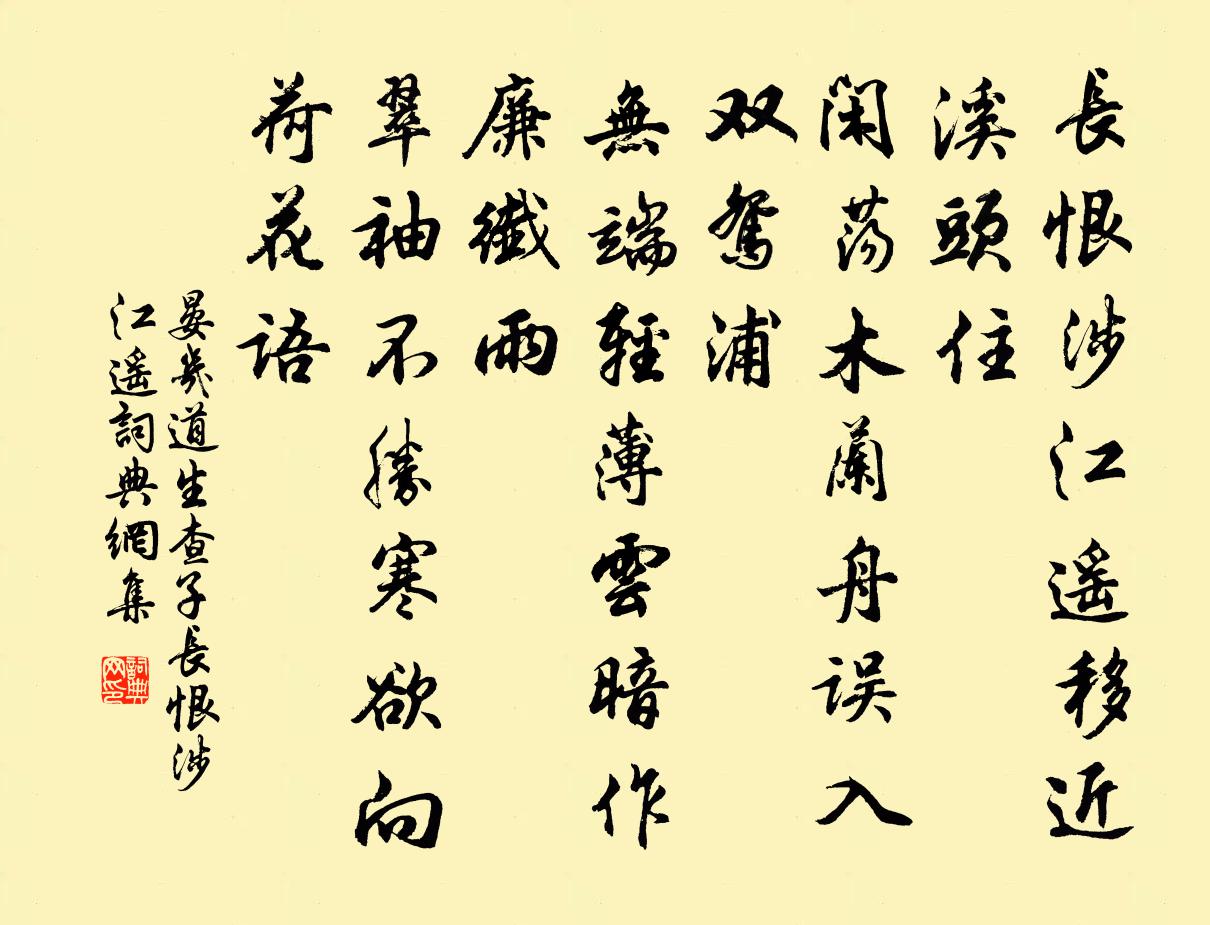 長恨涉江遥移近
溪頭住
闲荡木蘭舟误入
双鸳浦
無端輕薄雲暗作
廉纖雨
翠袖不勝寒欲向
荷花语
晏幾道生查子長恨涉
江遥詞典網集
詞典
网印